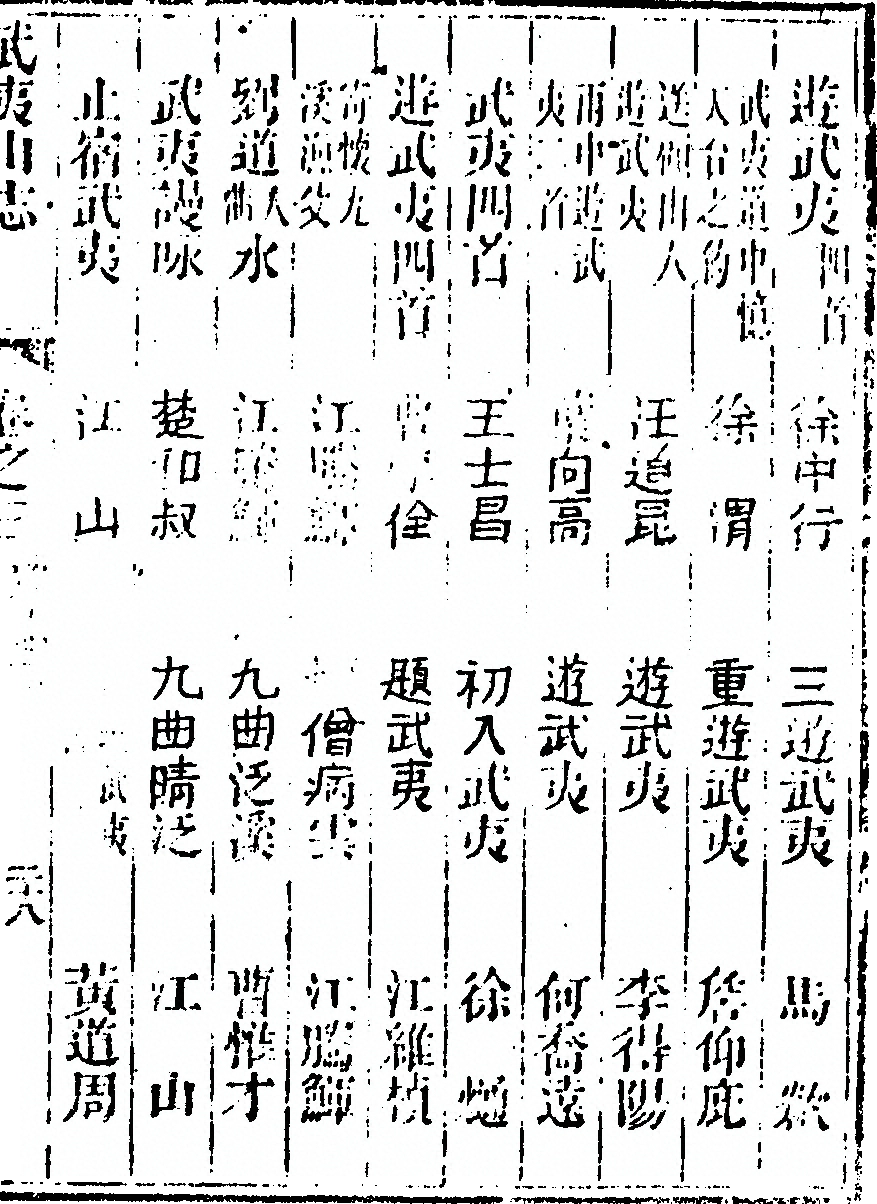 遊武夷四首 徐中行 三遊武夷 馬
武夷道中憶天台之約 徐渭 重遊武夷 詹仰庇
送仙山人遊武夷 汪道昆 遊武夷 李得陽
雨中遊武夷二首 向高 遊武夷 何喬遠
武夷四首 王士昌 初入武夷 徐𤊹
遊武夷四首 佺 題武夷 江維楨
寄懷九溪漁父 江騰鯶 僧病 江騰鯶
到道人衕水 江騰鯶 九曲泛溪 曹惟才
武夷謾咏 楚和叔 九曲晴泛 江山
止宿武夷 江山 武夷 黃道周
武夷山志 卷之三 二十八